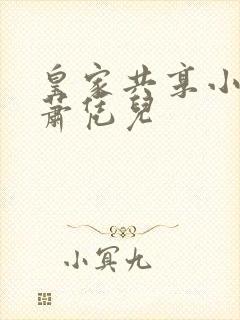 皇家共享小
蕭恁兒
小冥九